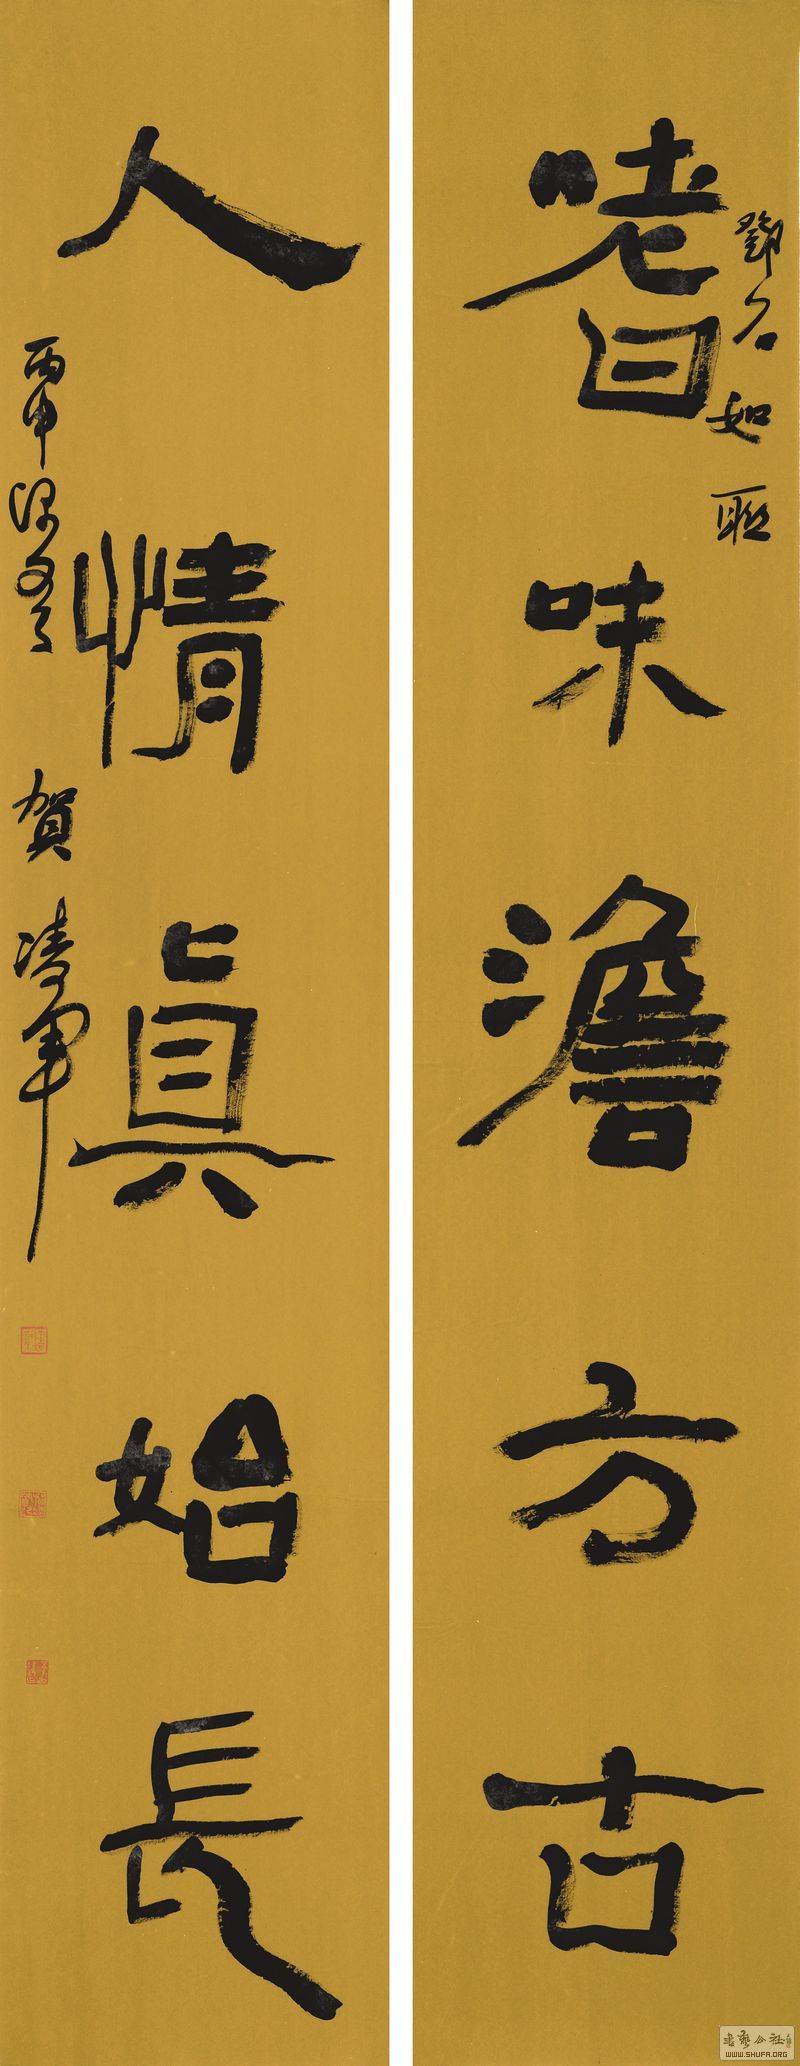 鄧石如聯
嗜味澹方古
人情真始長
丙申深冬 賀凌軍
書藝公社
WWW.SHUFA.ORG